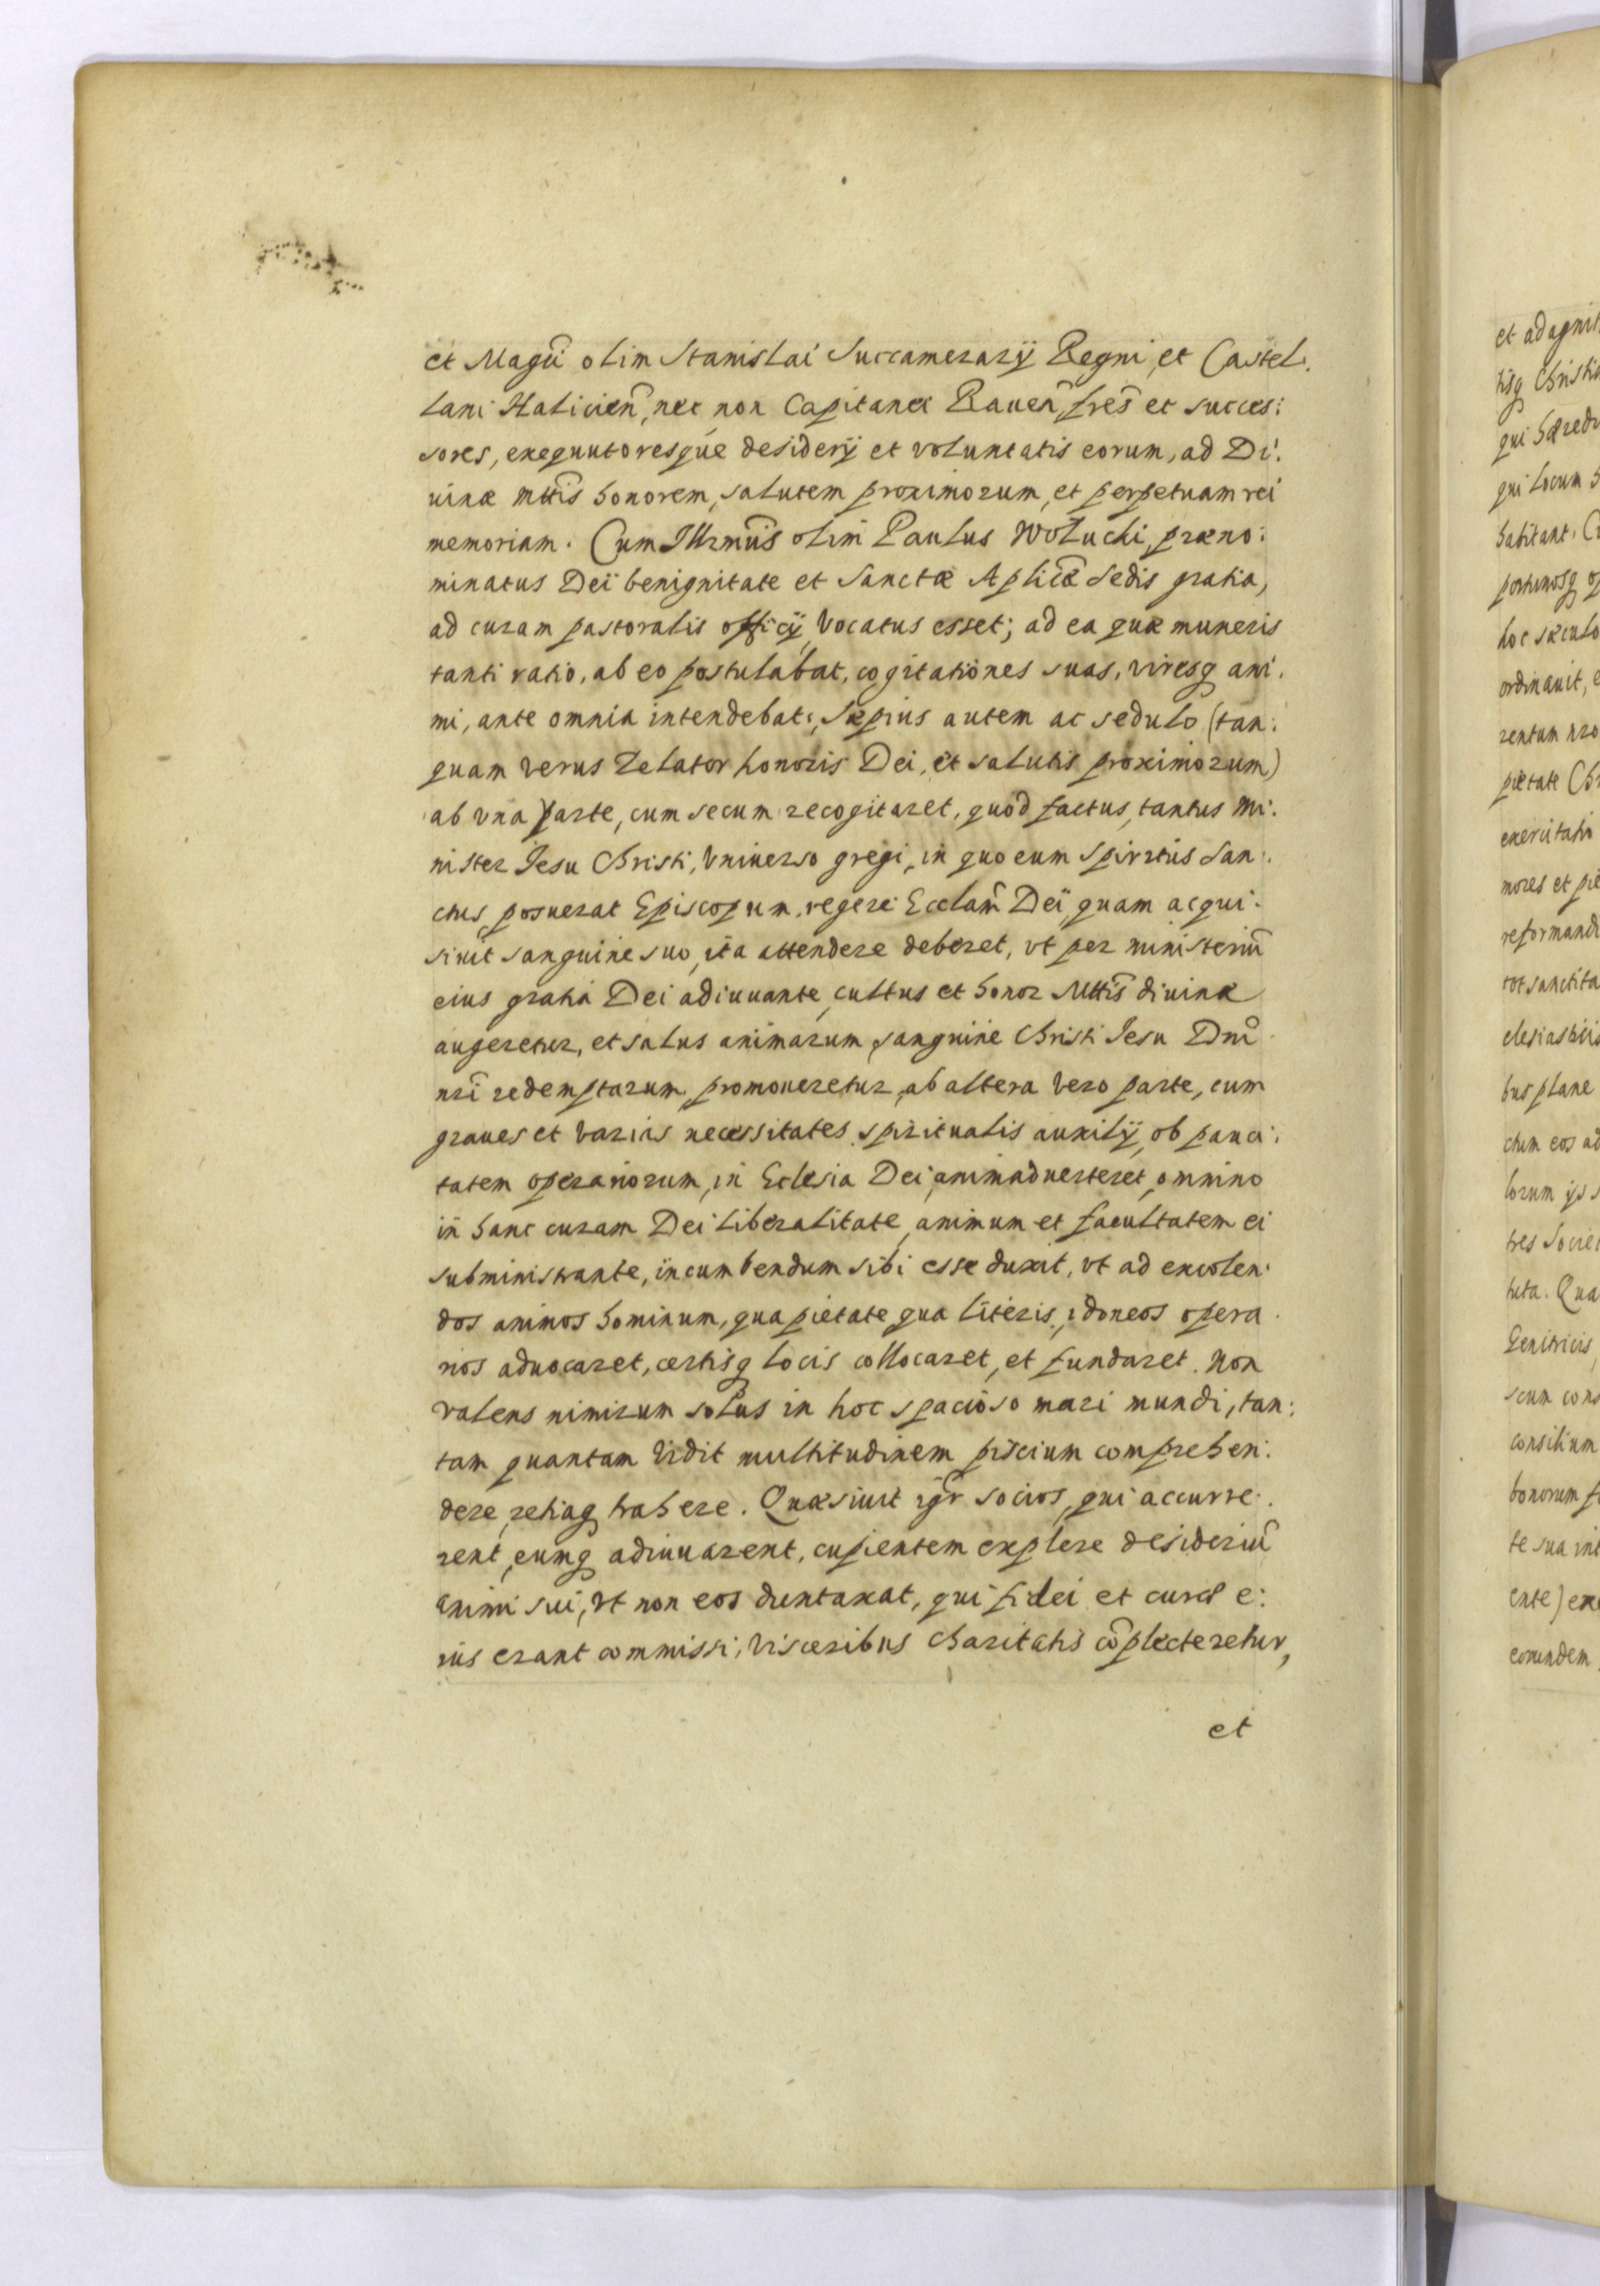 et Magci olim Stanislai Succamerarij Regni, et Castel:
lani Halicien̄, nec non Capitanei Rauen̄, fres̄ et succes:
sores, exequutoresque desiderij et voluntatis eorum, ad Di:
uinæ Mttis honorem, salutem proximorum, et perpetuam rei
memoriam. Cum Illrmus̄ olim Paulus Wołucki, præno:
minatus Dei benignitate et Sanctæ Aplicæ Sedis gratia,
ad curam pastoralis officij, vocatus esset; ad ea quæ muneris
tanti ratio, ab eo postulabat, cogitationes suas, viresq ani:
mi, ante omnia intendebat; Sæpius autem ac sedulo (tan:
quam verus Zelator honoris Dei, et salutis proximorum)
ab vna parte, cum secum recogitaret, quod factus, tantus Mi:
nister Iesu Christi, vniuerso gregi, in quo eum Spiritus San:
ctus posuerat Episcopum, regere Ecclam̄ Dei, quam acqui:
siuit sanguine suo, ita attendere deberet, vt per ministeriū
eius gratia Dei adiuuante, cultus et honor Mttis̄ diuinæ
augeretur, et salus animarum, sanguine Christi Iesu Dni
nri redemptarum, promoueretur, ab altera vero parte, cum
graues et varias necessitates spiritualis auxilij, ob pauci:
tatem operariorum, in Eclesia Dei, animaduerteret, omnino
in hanc curam Dei liberalitate, animum et facultatem ei
subministrante, incumbendum sibi esse duxit, vt ad excolen:
dos animos hominum, qua pietate qua literis, idoneos opera:
rios aduocaret, certisq locis collocaret, et fundaret. Non
valens nimirum solus in hoc spacioso mari mundi, tan:
tam quantam vidit multitudinem piscium comprehen:
dere, retiaq trahere. Quæsiuit igr̄ socios, qui accurre:
rent, eumq adiuuarent, cupientem explere desideriū
animi sui, vt non eos duntaxat, qui fidei et curæ e:
ius erant commissi, visceribus charitatis cōplecteretur,
et